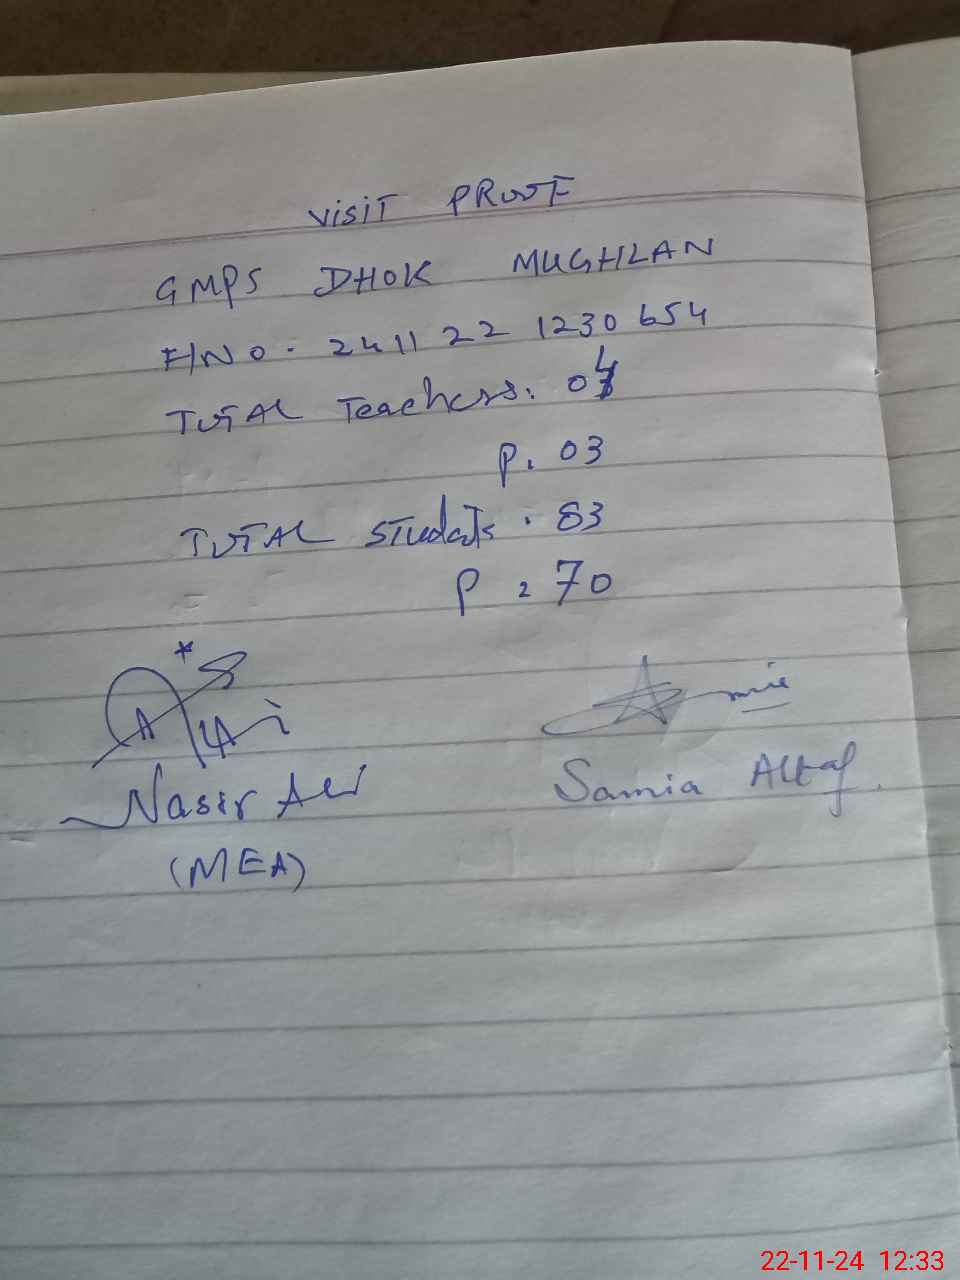 VISIT PROOF
GMPS DHOK MUGHLAN
F/NO. 241122 1230 654
TOTAL Teachers: 04
P. 03
TOTAL Students: 83
P : 70
Nasir Ali
Samia Altaf.
(MEA)
22-11-24 12:33